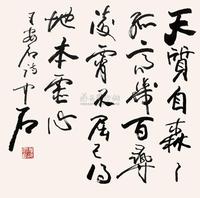 天質自森〻
孤高幾百尋
凌霄不屈己得
地本虛心
王安石詩中石